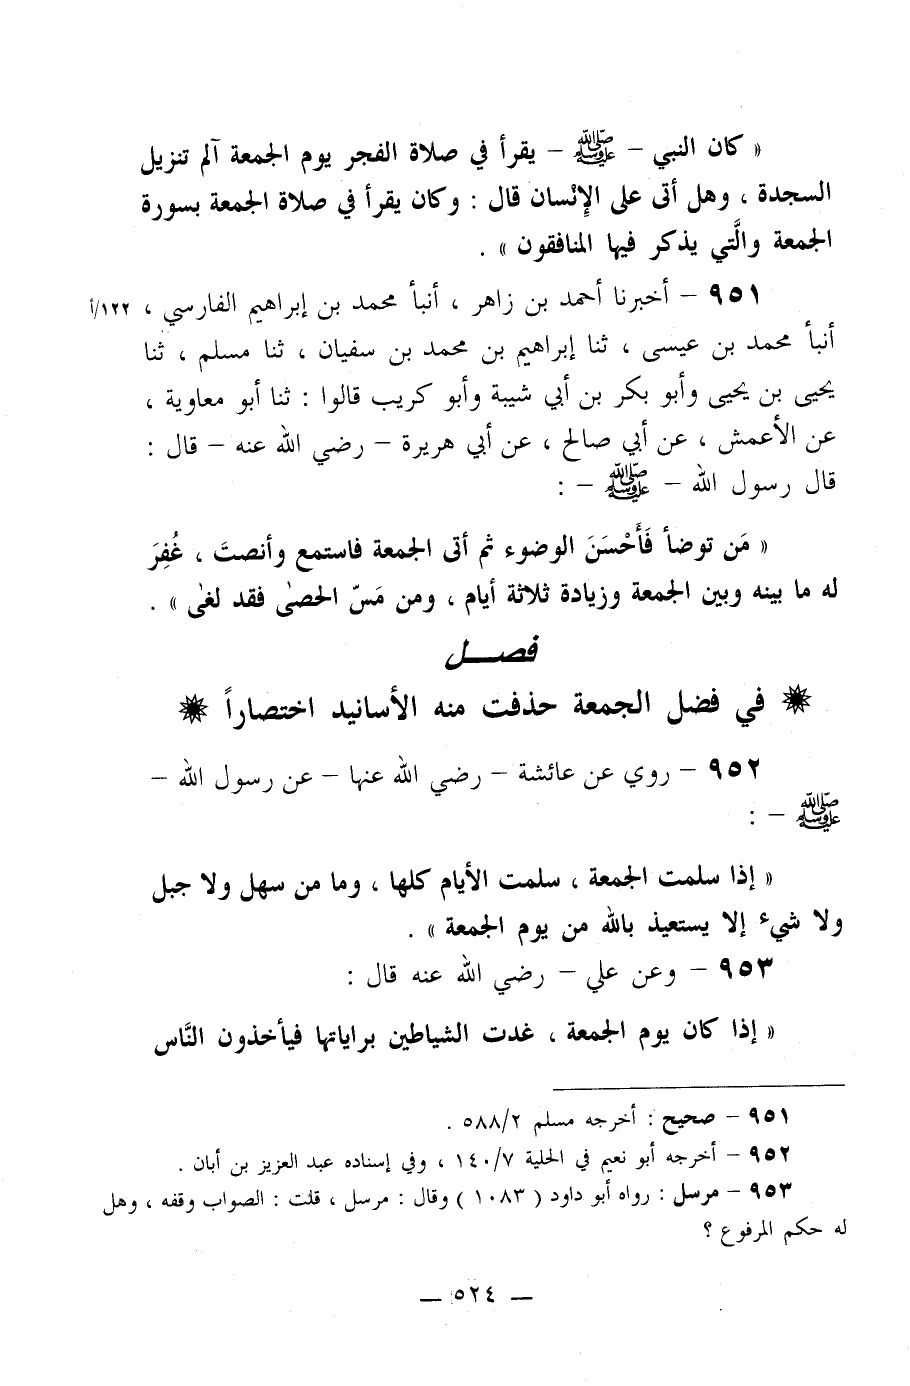 « كان النبي – ﷺ – يقرأ في صلاة الفجر يوم الجمعة آلم تنزيل
السجدة ، وهل أتى على الإنْسان قال : وكان يقرأ في صلاة الجمعة بسورة
الجمعة والَّتي يذكر فيها المنافقون » .
٩٥١ – أخبرنا أحمد بن زاهر ، أنبأ محمد بن إبراهيم الفارسي ، ١٢٢/أ
أنبأ محمد بن عيسى ، ثنا إبراهيم بن محمد بن سفيان ، ثنا مسلم ، ثنا
يحيى بن يحيى وأبو بكر بن أبي شيبة وأبو كريب قالوا : ثنا أبو معاوية ،
عن الأعمش ، عن أبي صالح ، عن أبي هريرة – رضي الله عنه – قال :
قال رسول الله – ﷺ – :
« مَن توضأ فَأَحْسَنَ الوضوء ثم أتى الجمعة فاستمع وأنصتَ ، غُفِرَ
له ما بينه وبين الجمعة وزيادة ثلاثة أيام ، ومن مَسّ الحصىٰ فقد لغىٰ » .
فصــــل
❋ في فضل الجمعة حذفت منه الأسانيد اختصاراً ❋
٩٥٢ – روي عن عائشة – رضي الله عنها – عن رسول الله –
ﷺ – :
« إذا سلمت الجمعة ، سلمت الأيام كلها ، وما من سهل ولا جبل
ولا شيء إلا يستعيذ بالله من يوم الجمعة » .
٩٥٣ – وعن علي – رضي الله عنه قال :
« إذا كان يوم الجمعة ، غدت الشياطين براياتها فيأخذون النَّاس
٩٥١ – صحيح : أخرجه مسلم ٥٨٨/٢ .
٩٥٢ – أخرجه أبو نعيم في الحلية ١٤٠/٧ ، وفي إسناده عبد العزيز بن أبان .
٩٥٣ – مرسل : رواه أبو داود ( ١٠٨٣ ) وقال : مرسل ، قلت : الصواب وقفه ، وهل
له حكم المرفوع ؟
– ٥٢٤ –